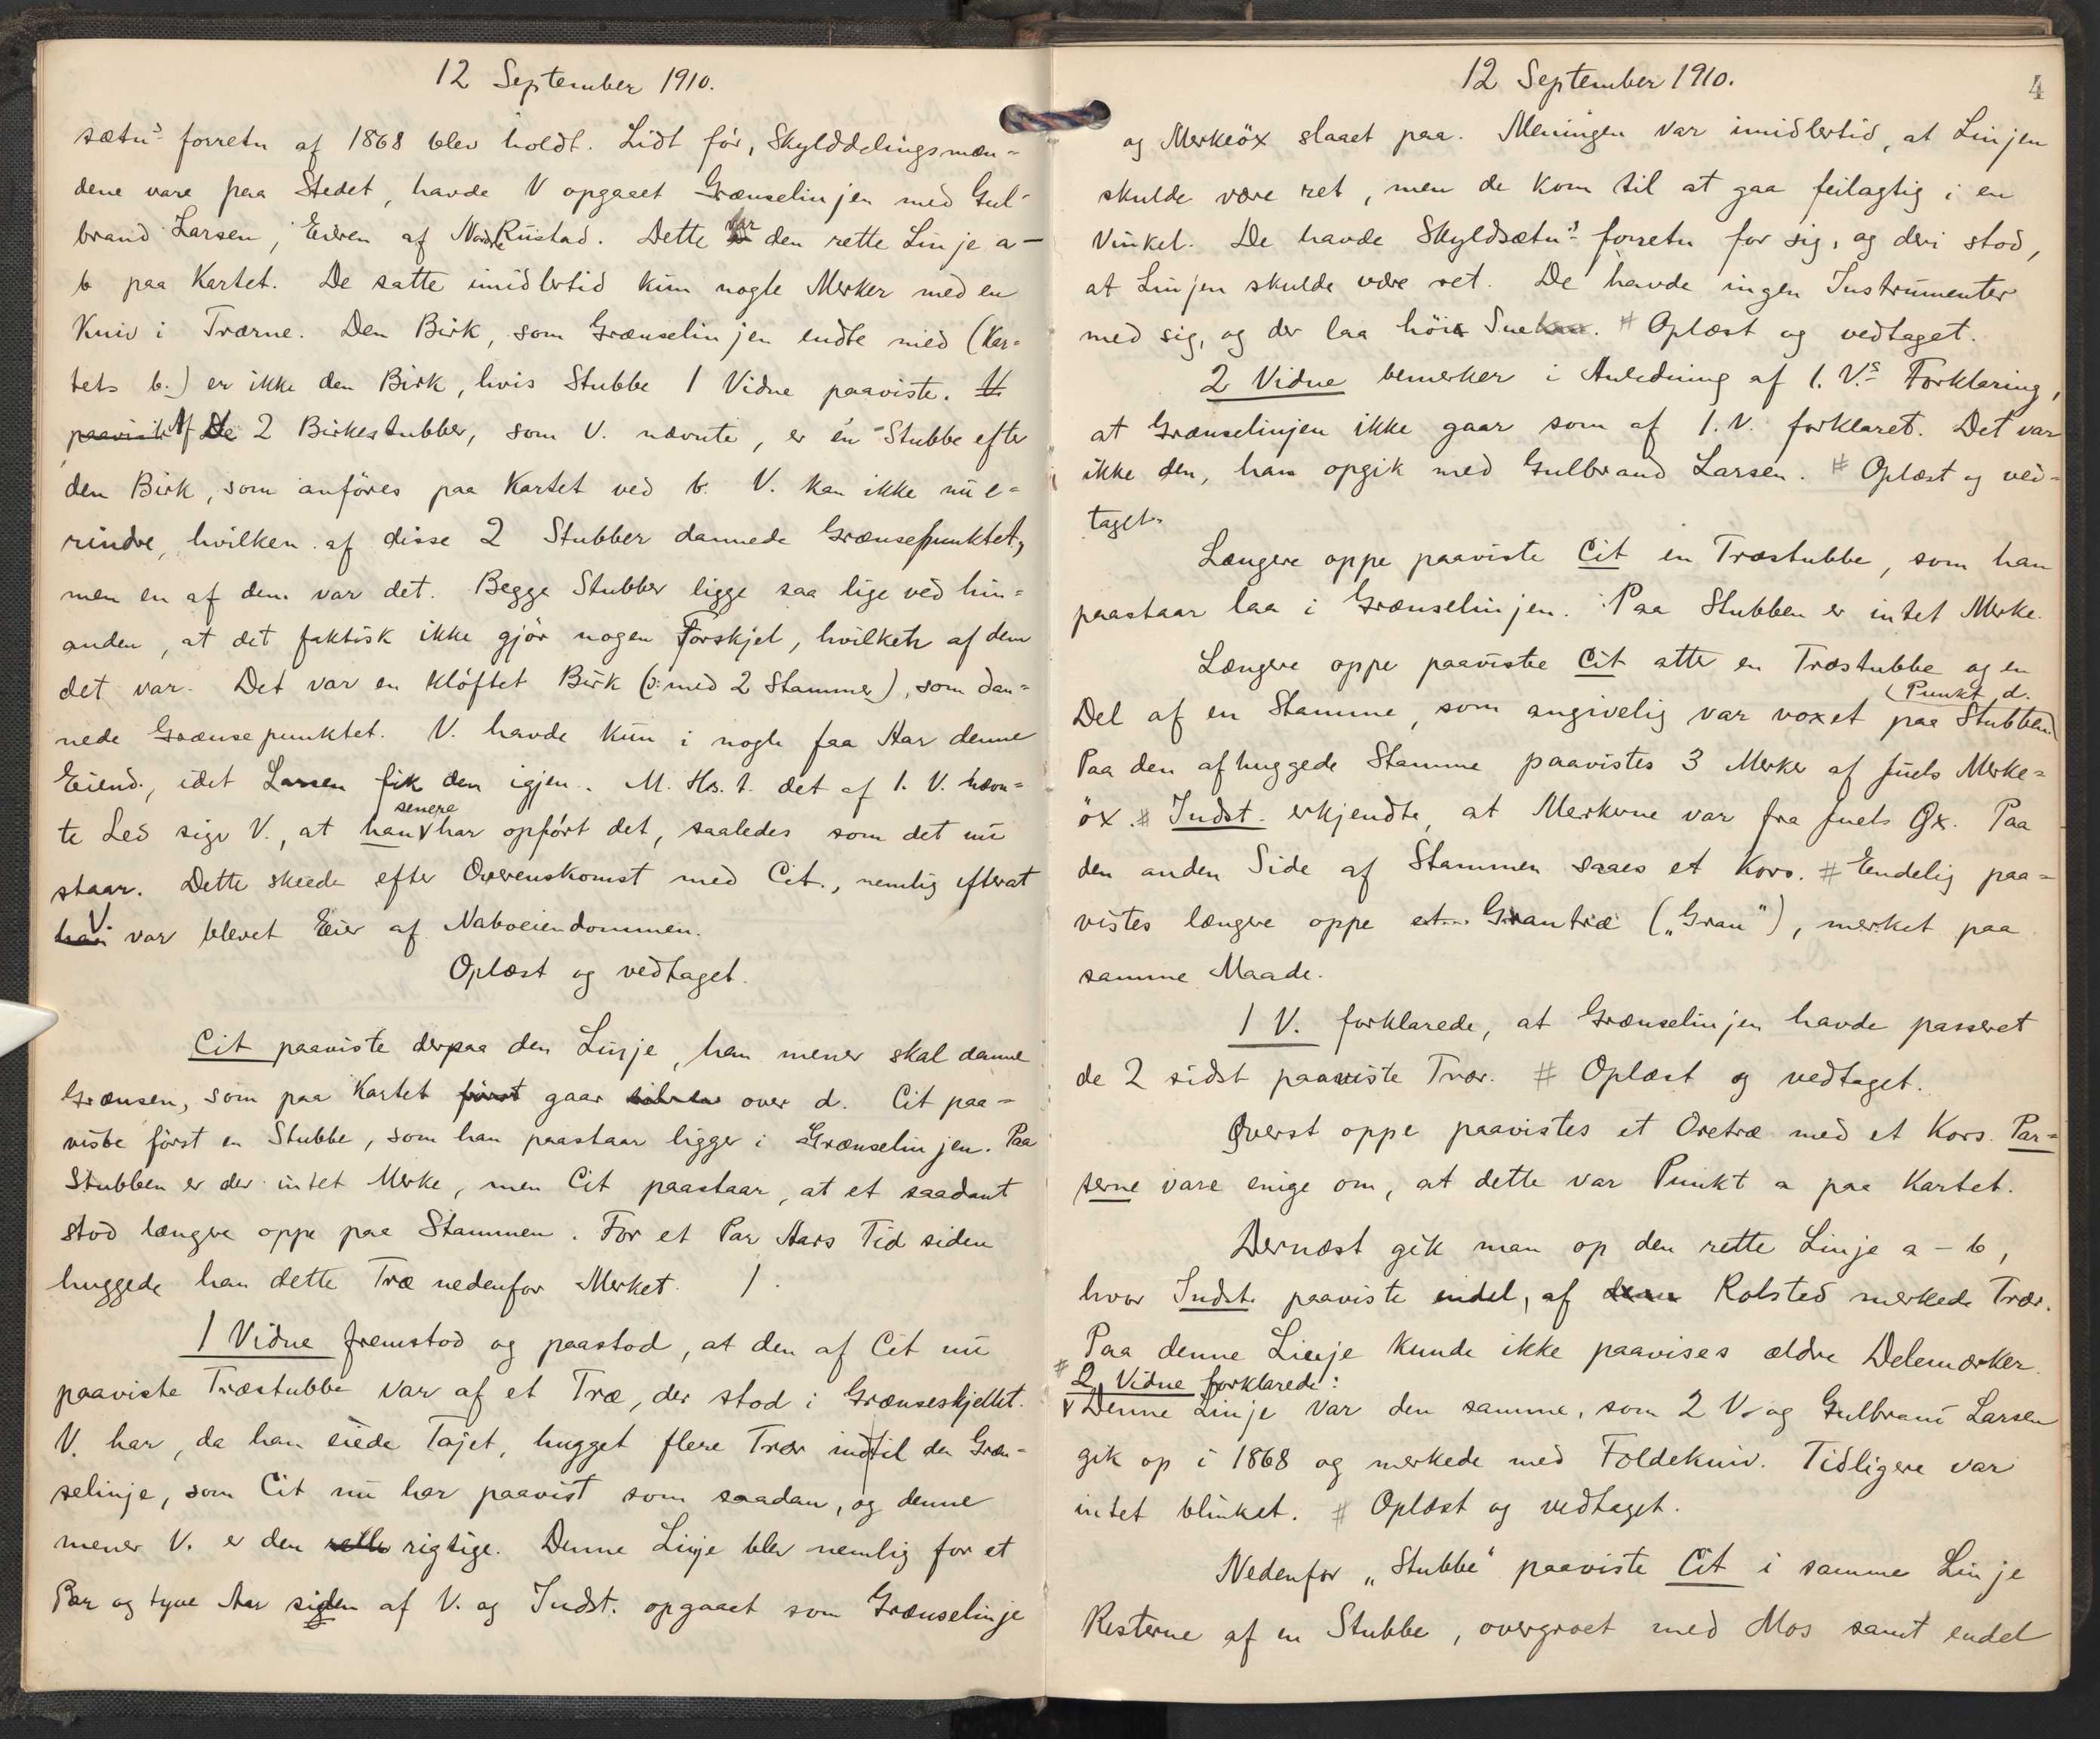 12 September 1910.
sætns forretn af 1868 blev holdt. Lidt før, Skylddelingsmæn=
dene vare paa Stedet, havde V opgaaet Grænselinjen med Gul-
brand Larsen, Eieren af Nordre Rustad. Dette var den rette Linje a-
b paa Kartet. De satte imidlertid kun nogle Merker med en
Kniv i Trærne. Den Birk, som Grænselinjen endte med (Kar=
tets b.) er ikke den Birk, hvis Stubbe 1 Vidne paaviste. V.
paaviste Af De 2 Birkestubber, som V. nævnte, er én Stubbe efter
den Birk, som anføres paa Kartet ved b. V. kan ikke nu e=
rindre, hvilken af disse 2 Stubber dannede Grænsepunktet,
men en af dem var det. Begge Stubber ligge saa lige ved hin=
anden, at det faktisk ikke gjør nogen Forskjel, hvilken af dem
det var. Det var en kløftet Birk (ɔ: med 2 Stammer), som dan=
nede Grænsepunktet. V. havde kun i nogle faa Aar denne
Eiend., idet Larsen fik den igjen. M. Hs. t. det af 1. V. nævn=
te Led siger V., at han senere har opført det, saaledes som det nu
staar. Dette skede efter Overenskomst med Cit., nemlig efterat
han V. var blevet Eier af Naboeiendommen.
Oplæst og vedtaget.
Cit paaviste derpaa den Linje, han mener skal danne
Grænsen, som paa Kartet først gaar over d. Cit paa=
viste først en Stubbe, som han paastaar ligger i Grænselinjen. Paa
Stubben er der intet Merke, men Cit paastaar, at et saadant
stod længre oppe paa Stammen. For et Par Aars Tid siden
huggede han dette Træ nedenfor Merket.
1 Vidne fremstod og paastod, at den af Cit nu
paaviste Træstubbe var af et Træ, der stod i Grænseskjellet.
V. har, da han eiede Tajet, hugget flere Trær indtil den Græn=
selinje, som Cit nu har paavist som saadan, og denne
mener V. er den rette rigtige. Denne Linje blev nemlig for et
Par og tyve Aar siden af V. og Indst. opgaaet som Grænselinje
12 September 1910.
4
og Merkeöx slaaet paa. Meningen var imidlertid, at Linjen
skulde være ret, men de kom til at gaa feilagtig i en
Vinkel. De havde Skyldsætns forretn for sig, og deri stod,
at Linjen skulde være ret. De havde ingen Instrumenter
med sig, og der laa höi Sne. # Oplæst og vedtaget.
2 Vidne bemerker i Anledning af 1. V.s Forklaring,
at Grænselinjen ikke gaar som af 1. V. forklaret. Det var
ikke den, han opgik med Gulbrand Larsen. # Oplæst og ved=
taget.
Længere oppe paaviste Cit en Træstubbe, som han
paastaar laa i Grænselinjen. Paa Stubben er intet Merke.
Længere oppe paaviste Cit atter en Træstubbe og en
(Punkt d.
Del af en Stamme, som angivelig var voxet paa Stubben)
Paa den afhuggede Stamme paavistes 3 Merker af Juels Merke=
öx. # Indst. erkjendte, at Merkerne var fra Juels Øx. Paa
den anden Side af Stammen saaes et Kors. # Endelig paa=
vistes længere oppe et Grantræ („Gran"), merket paa
samme Maade.
1 V. forklarede, at Grænselinjen havde passeret
de 2 sidst paaviste Trær. # Oplæst og vedtaget.
Øverst oppe paavistes et Oretræ med et Kors. Par=
terne vare enige om, at dette var Punkt a paa Kartet.
Dernæst gik man op den rette Linje a - b,
hvor Indst. paaviste endel, af Rolsted merkede Trær.
Paa denne Linje kunde ikke paavises ældre Delemærker.
# 2 Vidne forklarede:
Denne Linje var den samme, som 2 V. og Gulbrand Larsen
gik op i 1868 og merkede med Foldekniv. Tidligere var
intet blinket. # Oplæst og vedtaget.
Nedenfor „Stubbe" paaviste Cit i samme Linje
Resterne af en Stubbe, overgroet med Mos samt endel